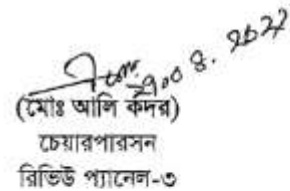 (মোঃ আলি কদর)
চেয়ারপারসন
রিভিউ প্যানেল-৩